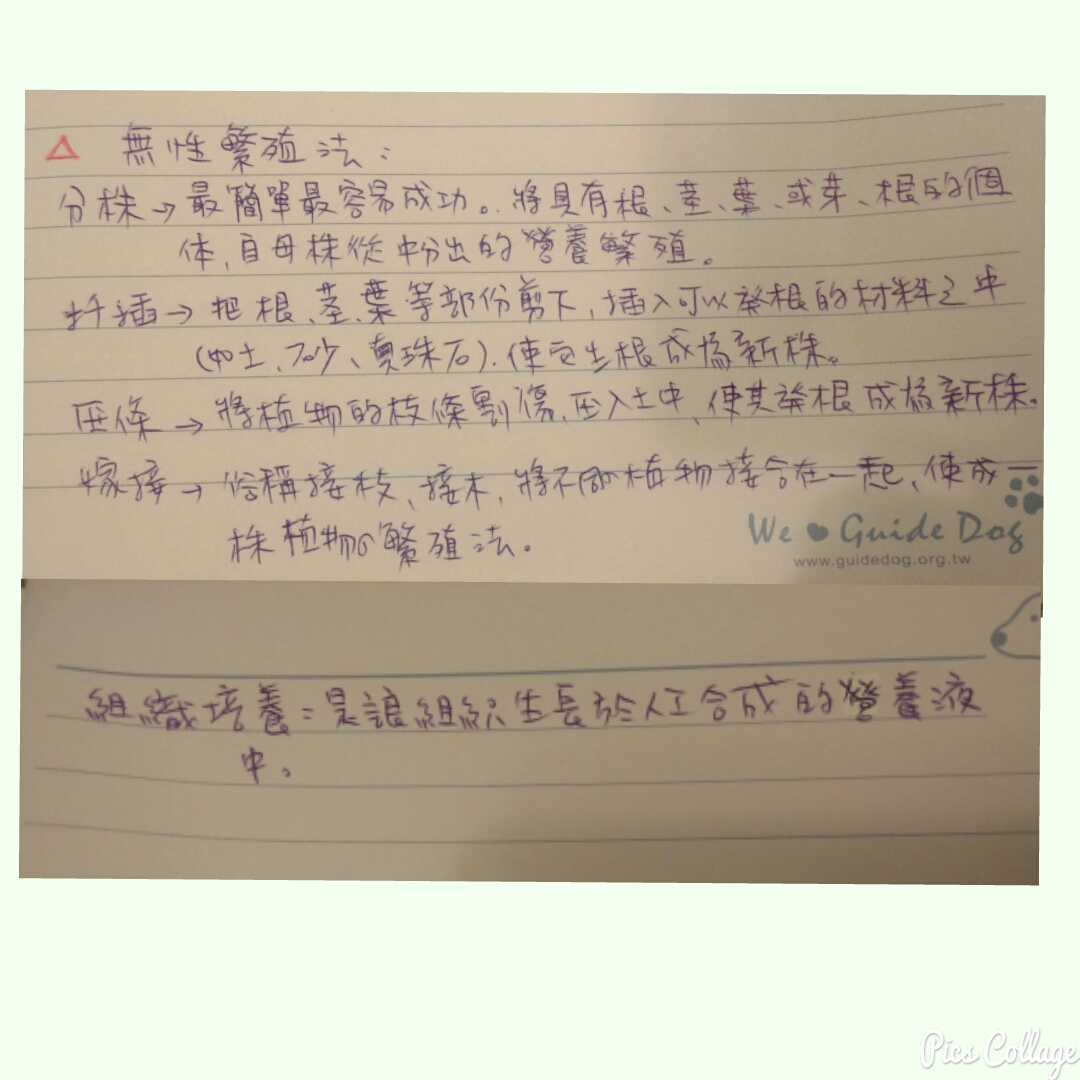 △ 無性繁殖法：
分株→最簡單最容易成功。將具有根、莖、葉、或芽、根的個
体,自母株從中分出的營養繁殖。
扦插→把根、莖、葉等部份剪下,插入可以發根的材料之中
(如土、石沙、真珠石).使它生根成為新株。
压條→將植物的枝條割傷、压入土中、使其發根成為新株。
嫁接→俗稱接枝、接木,將不同植物接合在一起、使成一
株植物の繁殖法。
We Guide Dog
www.guidedog.org.tw
組織培養:是讓組織生長於人工合成的營養液
中。
Pics Collage